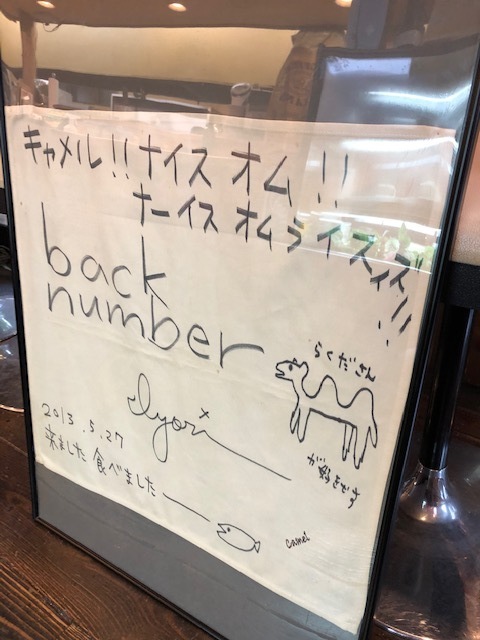 キャメル!! ナイス オム!!
ナーイス オムライスッズ!!
back
number
らくださん
が好きです
Iyori
2013.5.27
来ました 食べました
camel